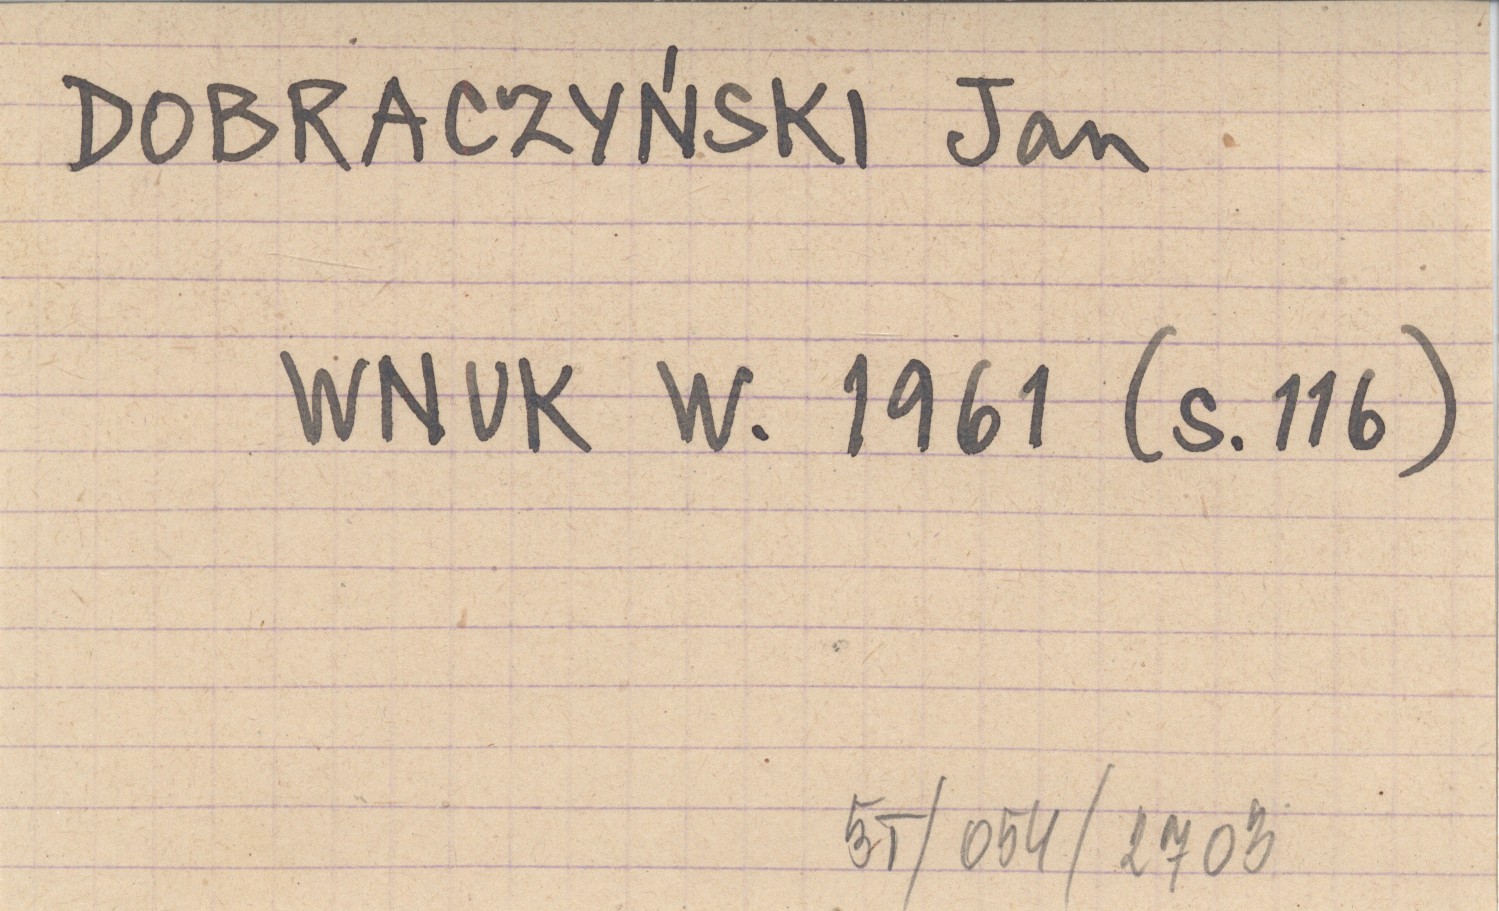 DOBRACZYŃSKI Jan
WNUK W. 1961 (s. 116)
5T/054/2703